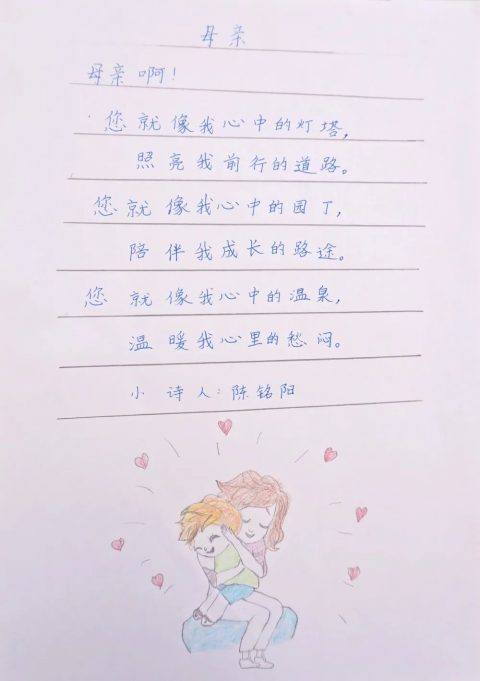 母亲
母亲啊！
您就像我心中的灯塔，
照亮我前行的道路。
您就像我心中的园丁，
陪伴我成长的路途。
您就像我心中的温泉，
温暖我心里的愁闷。
小诗人：陈铭阳